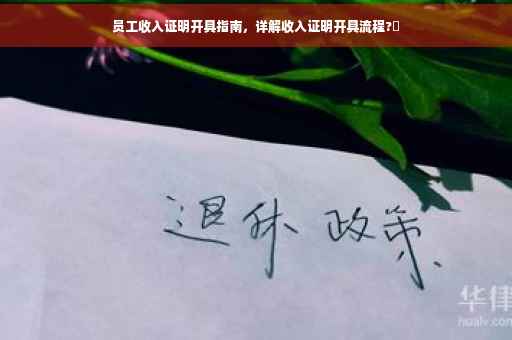 员工收入证明开具指南，详解收入证明开具流程?
退休 政策
华律
hualv.com